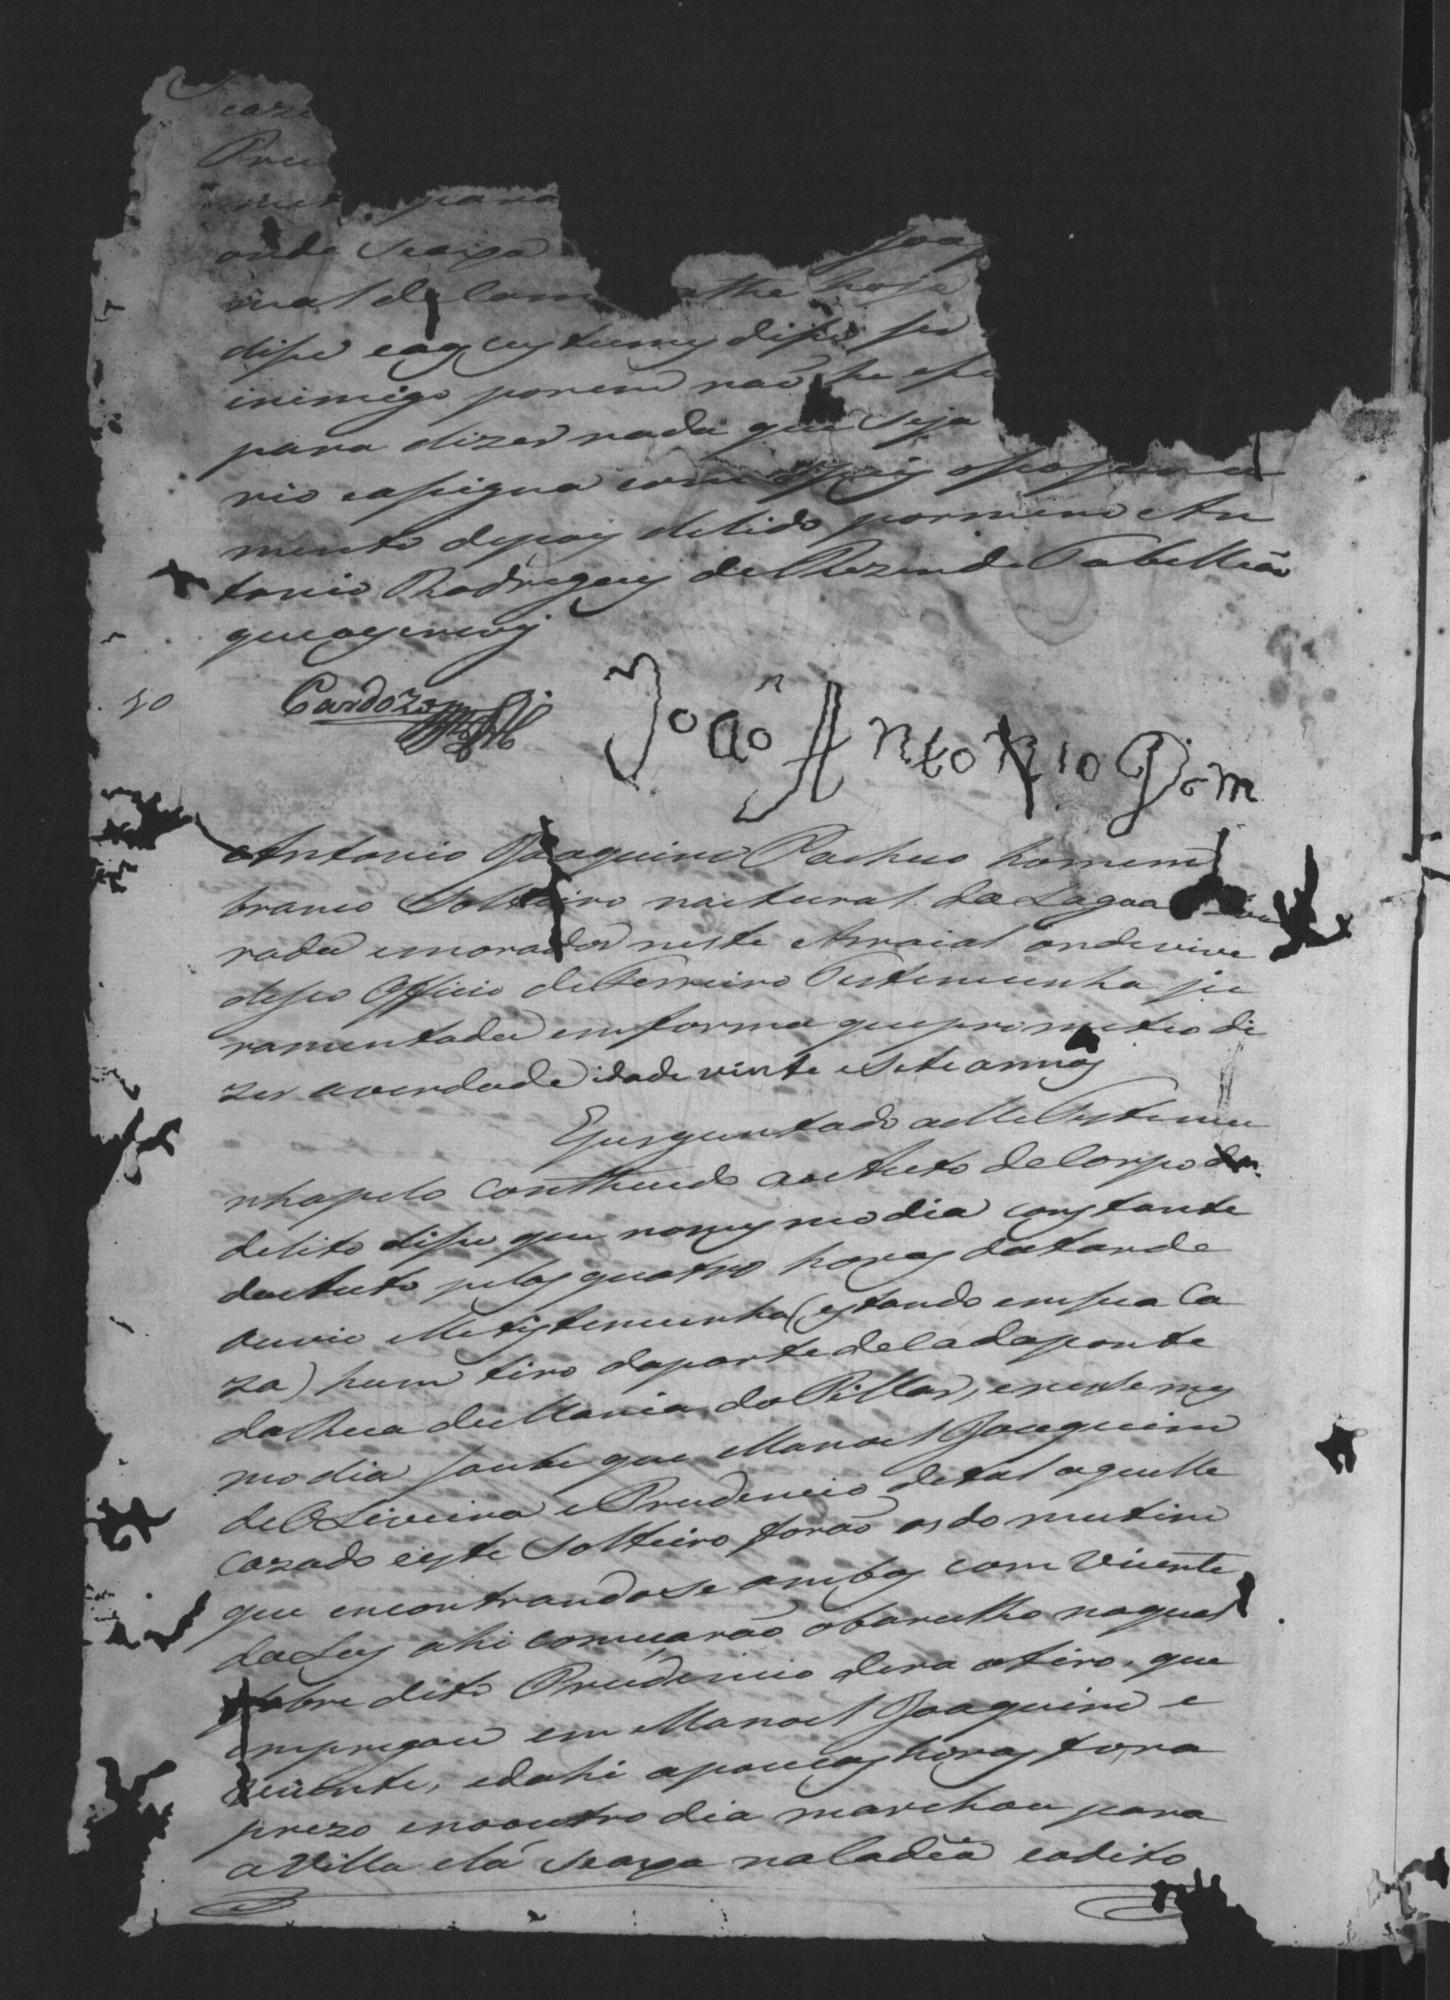 caze
Pru
para
onde seaxa
mal de
dise ser
inimigo porem não he
para dizer nada que seja
rio easigna com
mento depois delido por mim An
tonio Rodrigues de Rezende Tabellião
que oescrevy
10
Cardozo
João Antonio Dom
Antonio Joaquim Pacheco homem
branco Solteiro naitural da Lagoa
rada emorador neste Arraial ondevive
deseo Officio de Ferreiro Testemunha ju
ramentada emforma queprometeo di
zer averdade idade vinte esete annos
Eperguntado aelle Testemu
nhapelo Conthiudo aoAuto deCorpo de
delito dise que nomesmo dia constante
doAuto pelas quatro horas datarde
ouvio elle testemunha (estando emsua Ca
za) hum tiro daparte deladaponte
daRua deMaria do Pillar, eneste mes
mo dia soube que Manoel Joaquim
deOLiveira e Prudencio detal aquelle
Cazado eeste Solteiro forão os do mutim
que encontrandose ambos com Vicente
da ahi comecarão obarulho noqual
sobre dito Prudencio dera otiro, que
empregou em Manoel Joaquim e
Vicente, edahi apoucas horas fora
prezo enooutro dia marchou para
aVilla elá seaxa naCadêa eodito